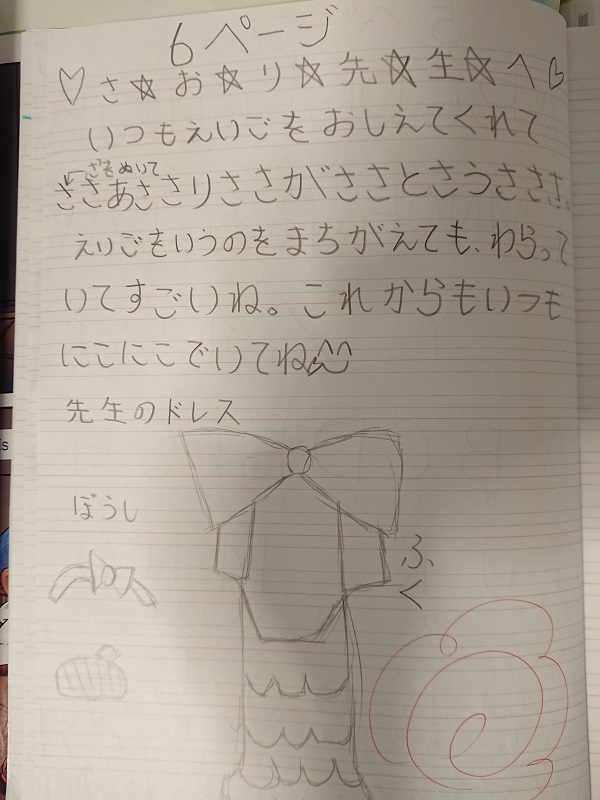 6ページ
♡さ☆お☆り☆先☆生☆へ♡
いつもえいごをおしえてくれて
←さをぬいて
ささあささりささがささとさうさささ。
えいごをいうのをまちがえても、わらって
いてすごいね。これからもいつも
にこにこでいてね
先生のドレス
ぼうし
ふく